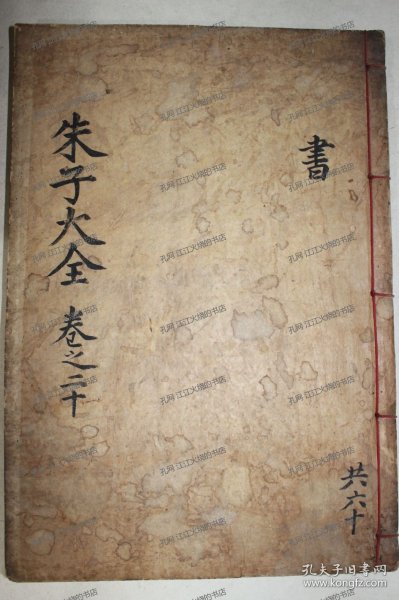 書
朱子大全 卷之二十
共六十
孔网 江江火烧的书店
孔夫子旧书网
www.kongfz.com